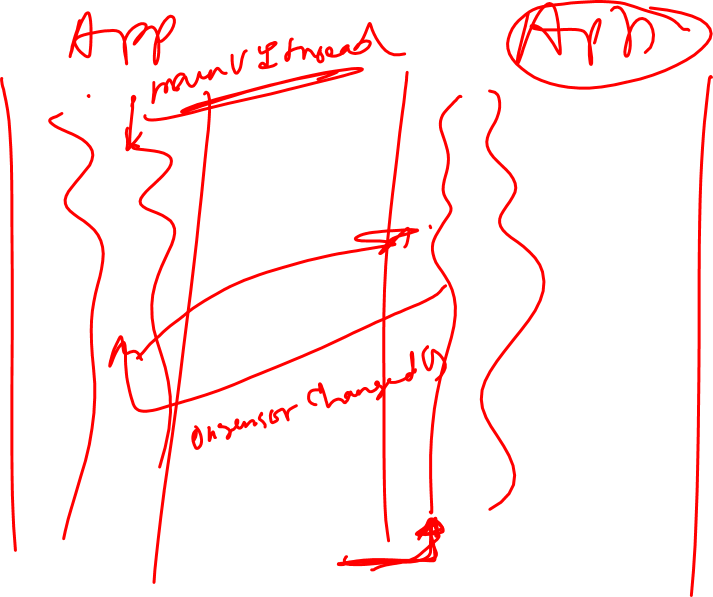 App
App
main UI thread
onsensor Changed()